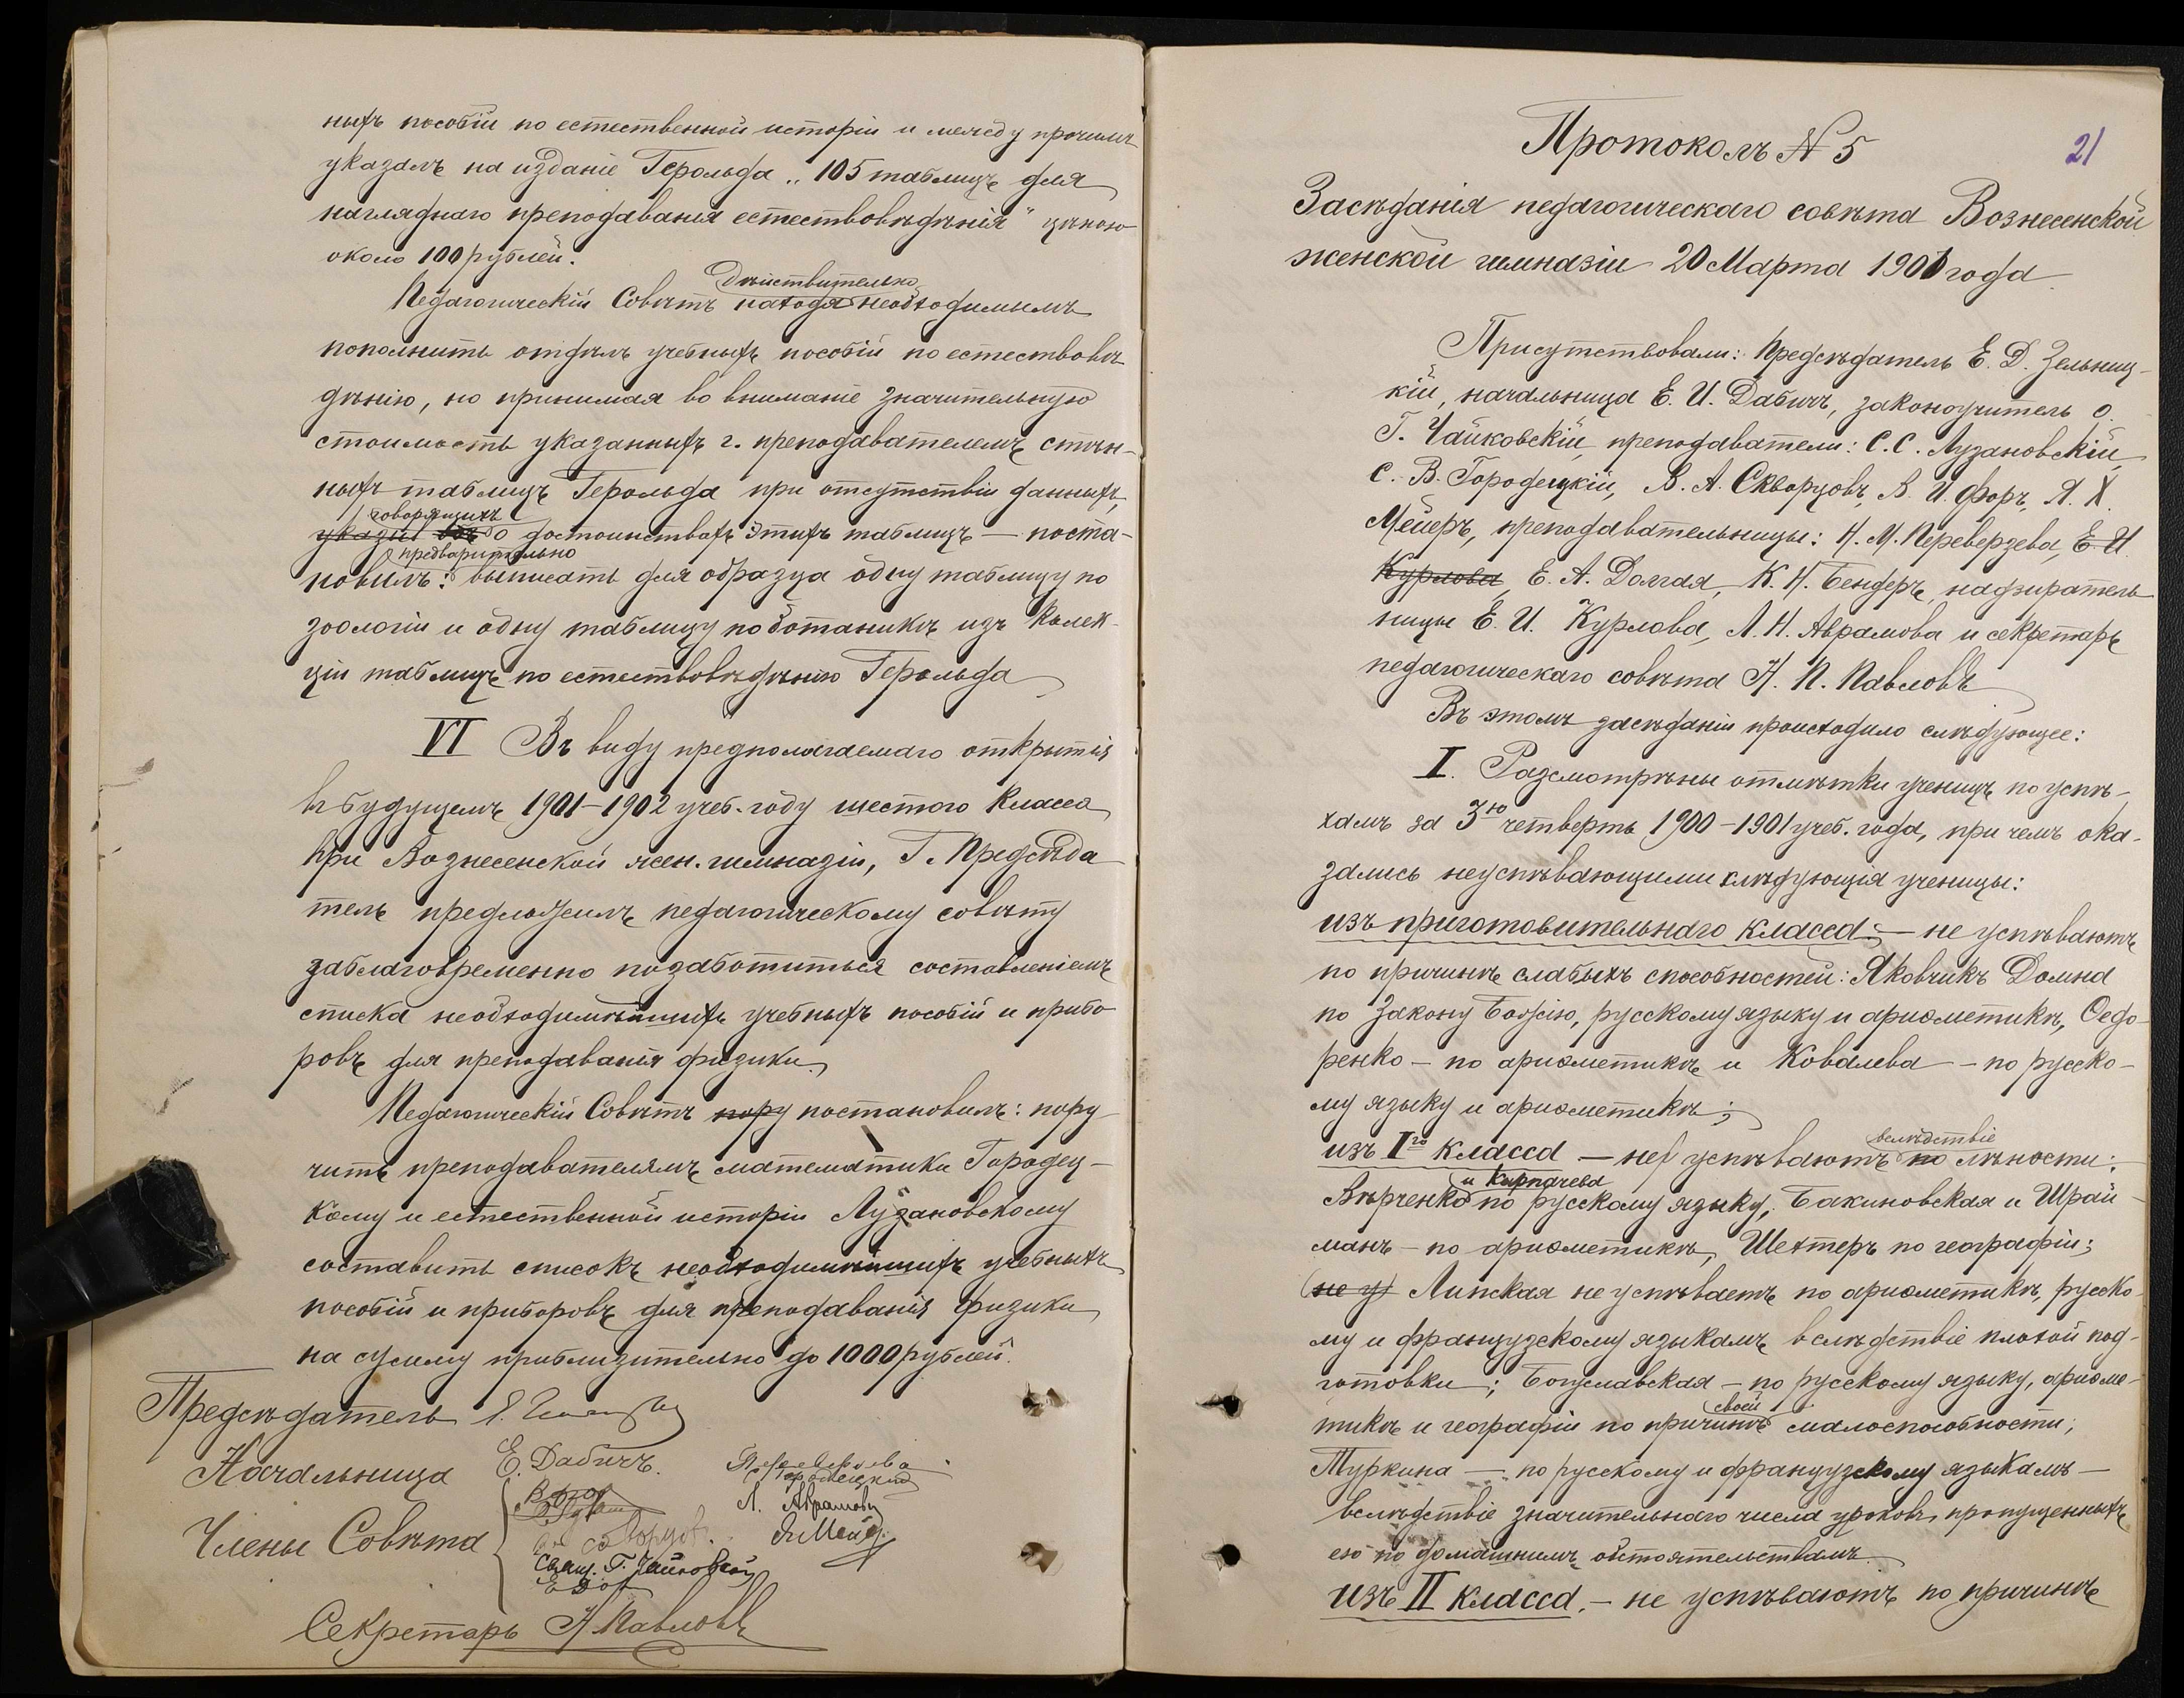 ныхъ пособій по естественной исторіи и между прочимъ
указалъ на изданіе Герольда „105 таблицъ для
нагляднаго преподаванія естествовѣдѣнія" цѣною
около 100 рублей.
дѣйствительно
Педагогическій Совѣтъ находя необходимымъ
пополнить отдѣлъ учебныхъ пособій по естествовѣ-
дѣнію, но принимая во вниманіе значительную
стоимость указанныхъ г. преподавателемъ стѣн-
ныхъ таблицъ Герольда при отсутствіи данныхъ,
говорящихъ
о достоинствахъ этихъ таблицъ — поста-
предварительно
новилъ: выписать для образца одну таблицу по
зоологіи и одну таблицу по ботаникѣ изъ колек-
ціи таблицъ по естествовѣдѣнію Герольда
VI Въ виду предполагаемаго открытія
въ будущемъ 1901–1902 учеб. году шестого класса
при Вознесенской жен. гимназіи, Г. Предсѣда
тель предложилъ педагогическому совѣту
заблаговременно позаботиться составленіемъ
списка необходимѣйшихъ учебныхъ пособій и прибо
ровъ для преподаванія физики
Педагогическій Совѣтъ пору постановилъ: пору
чить преподавателямъ математики Городец-
кому и естественной исторіи Лузановскому
составить списокъ необходимѣйшихъ учебныхъ
пособій и приборовъ для преподаванія физики
на сумму приблизительно до 1000 рублей.
Предсѣдатель
Начальница Е. Дабичъ. Переверзева
Городецкій
Члены Совѣта Л. Аврамова
Я. Мейеръ
Свящ. Г. Чайковскій
Секретарь Н. Павловъ
21
Протоколъ № 5
Засѣданія педагогическаго совѣта Вознесенской
женской гимназіи 20 Марта 1901 года
Присутствовали: Предсѣдатель Е. Д. Зельниц-
кій, начальница Е. И. Дабичъ, законоучитель о.
Г. Чайковскій, преподаватели: С. С. Лузановскій,
С. В. Городецкій, В. А. Скворцовъ, В. И. Форъ, Я. Х.
Мейеръ, преподавательницы: Н. М. Переверзева, Е. И
Курлова, Е. А. Долгая, К. Н. Бендеръ, надзиратель
ницы Е. И. Курлова, Л. Н. Аврамова и секретарь
педагогическаго совѣта Н. П. Павловъ
Въ этомъ засѣданіи происходило слѣдующее:
I. Разсмотрѣны отмѣтки ученицъ по успѣ-
хамъ за 3ю четверть 1900–1901 учеб. года, при чемъ ока-
зались неуспѣвающими слѣдующія ученицы:
изъ приготовительнаго класса: — не успѣваютъ
по причинѣ слабыхъ способностей: Яковчикъ Домна
по Закону Божію, русскому языку и ариѳметикѣ, Ѳедо-
ренко — по ариѳметикѣ и Ковалева — по русско-
му языку и ариѳметикѣ;
вслѣдствіе
изъ Iго класса — не успѣваютъ по лѣности:
и Карпачева
Вѣрченко по русскому языку, Бакиновская и Шрай-
манъ — по ариѳметикѣ, Шехтеръ по географіи;
(не у) Липская не успѣваетъ по ариѳметикѣ, русско-
му и французскому языкамъ вслѣдствіе плохой под-
готовки; Богуславская — по русскому языку, ариѳме-
своей
тикѣ и географіи по причинѣ малоспособности;
Туркина — по русскому и французскому языкамъ —
вслѣдствіе значительнаго числа уроковъ, пропущенныхъ
ею по домашнимъ обстоятельствамъ.
изъ II класса. — не успѣваютъ по причинѣ